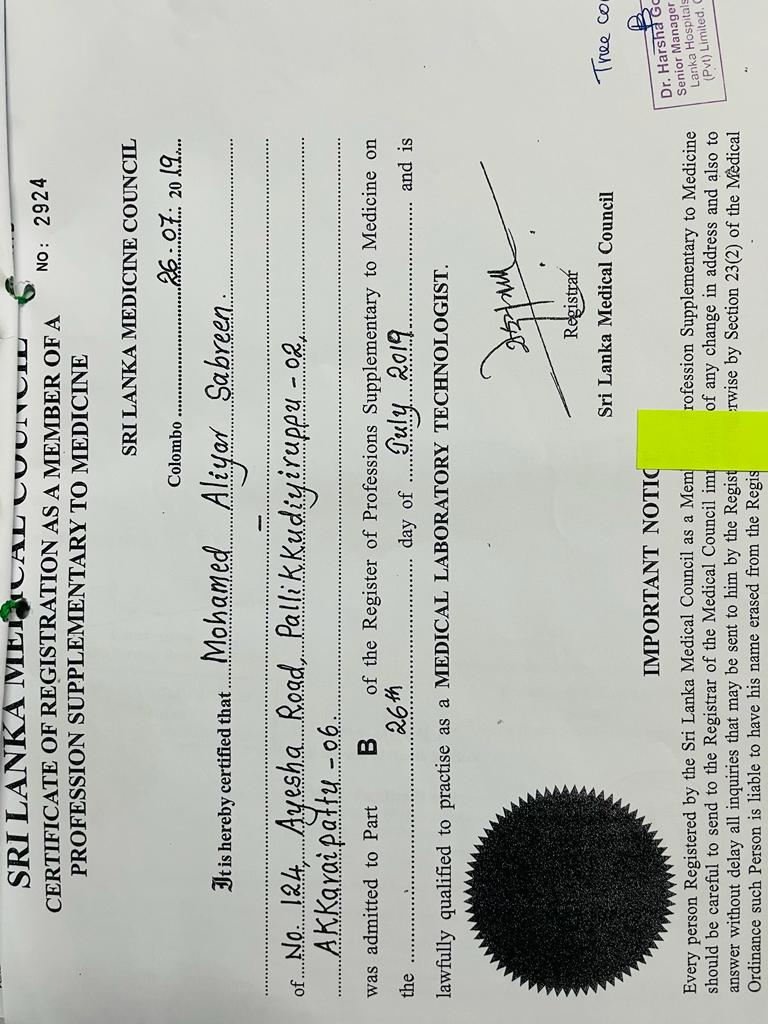 SRI LANKA MEDICAL COUNCIL
NO: 2924
CERTIFICATE OF REGISTRATION AS A MEMBER OF A
PROFESSION SUPPLEMENTARY TO MEDICINE
SRI LANKA MEDICINE COUNCIL
Colombo 26.07.2019
It is hereby certified that Mohamed Aliyar Sabreen.
of No. 124, Ayesha Road, Pallikkudiyiruppu-02,
Akkaraipattu-06.
was admitted to Part B of the Register of Professions Supplementary to Medicine on
the 26th day of July 2019 and is
lawfully qualified to practise as a MEDICAL LABORATORY TECHNOLOGIST.
Registrar
Sri Lanka Medical Council
Dr. Harsha
Senior Manager
Lanka Hospitals
(Pvt) Limited.
IMPORTANT NOTIC
Every person Registered by the Sri Lanka Medical Council as a Mem rofession Supplementary to Medicine
should be careful to send to the Registrar of the Medical Council imm of any change in address and also to
answer without delay all inquiries that may be sent to him by the Regist erwise by Section 23(2) of the Medical
Ordinance such Person is liable to have his name erased from the Regis